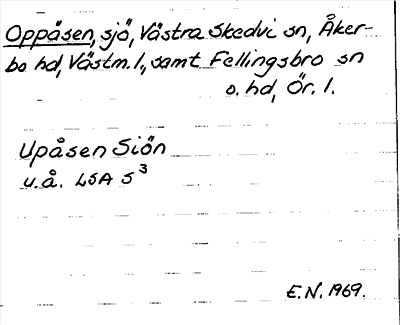 Oppåsen, sjö, Västra Skedvi sn, Åker-
bo hd, Västm. l., samt Fellingsbro sn
o. hd, Ör. l.
Upåsen Siön
u.å. LSA S³
E.N. 1969.